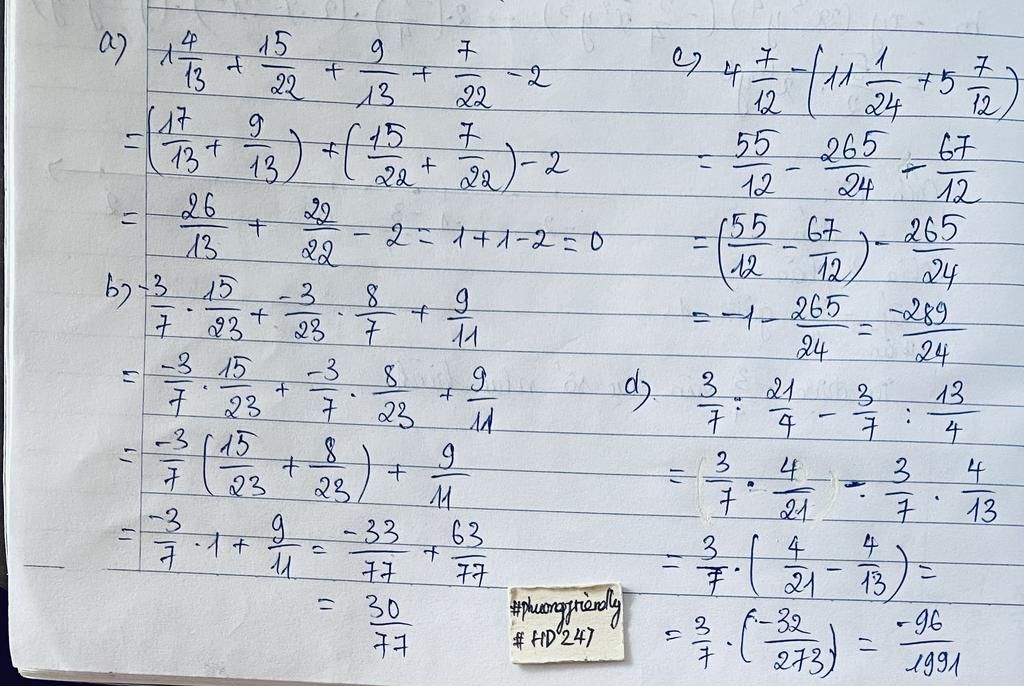 a) 1 4/13 + 15/22 + 9/13 + 7/22 - 2
= (17/13 + 9/13) + (15/22 + 7/22) - 2
= 26/13 + 22/22 - 2 = 1 + 1 - 2 = 0
b) -3/7 . 15/23 + -3/23 . 8/7 + 9/11
= -3/7 . 15/23 + -3/7 . 8/23 + 9/11
= -3/7 (15/23 + 8/23) + 9/11
= -3/7 . 1 + 9/11 = -33/77 + 63/77
= 30/77
c) 4 7/12 - (11 1/24 + 5 7/12)
= 55/12 - 265/24 - 67/12
= (55/12 - 67/12) - 265/24
= -1 - 265/24 = -289/24
d) 3/7 : 21/4 - 3/7 : 13/4
= (3/7 . 4/21) - 3/7 . 4/13
= 3/7 . (4/21 - 4/13) =
= 3/7 . (-32/273) = -96/1991
#phuongfriendly
#HD247